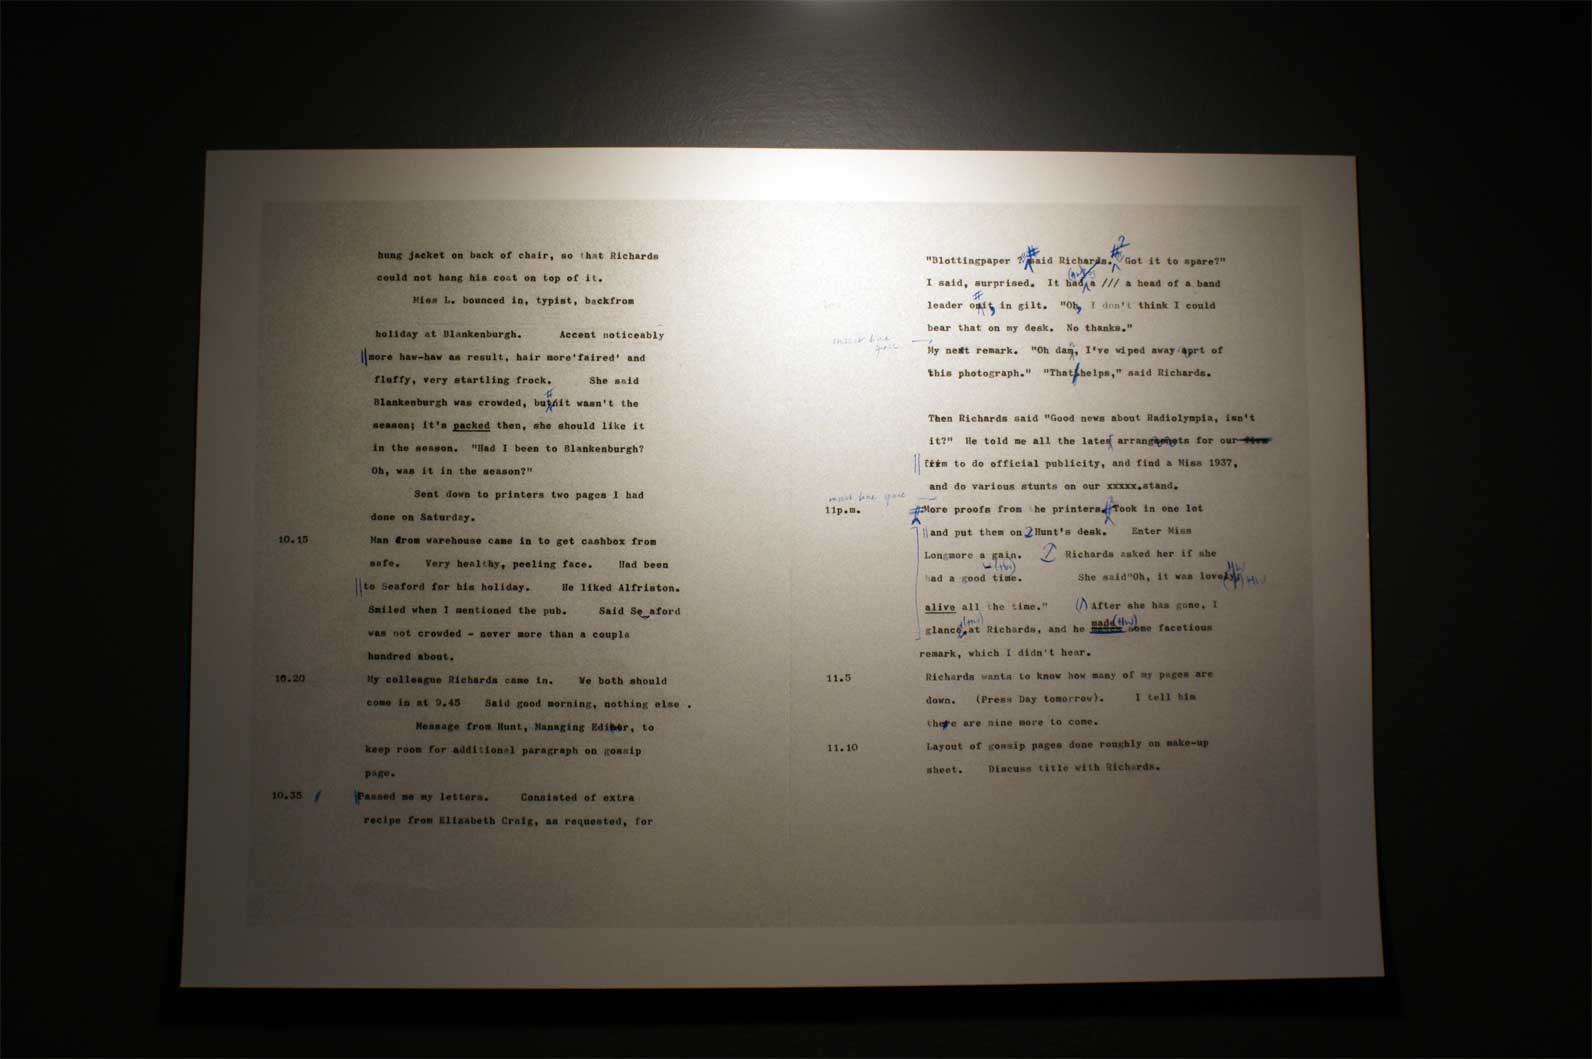 hung jacket on back of chair, so that Richards
could not hang his coat on top of it.
Miss L. bounced in, typist, backfrom
holiday at Blankenburgh. Accent noticeably
more haw-haw as result, hair more'faired' and
fluffy, very startling frock. She said
Blankenburgh was crowded, but it wasn't the
season; it's packed then, she should like it
in the season. "Had I been to Blankenburgh?
Oh, was it in the season?"
Sent down to printers two pages I had
done on Saturday.
10.15 Man from warehouse came in to get cashbox from
safe. Very healthy, peeling face. Had been
to Seaford for his holiday. He liked Alfriston.
Smiled when I mentioned the pub. Said Se aford
was not crowded - never more than a couple
hundred about.
10.20 My colleague Richards came in. We both should
come in at 9.45 Said good morning, nothing else .
Message from Hunt, Managing Editor, to
keep room for additional paragraph on gossip
page.
10.35 Passed me my letters. Consisted of extra
recipe from Elizabeth Craig, as requested, for
"Blottingpaper ?" said Richards. Got it to spare?"
I said, surprised. It had a /// a head of a band
leader on it, in gilt. "Oh, I don't think I could
bear that on my desk. No thanks."
insert line space
My next remark. "Oh damn, I've wiped away part of
this photograph." "That helps," said Richards.
Then Richards said "Good news about Radiolympia, isn't
it?" He told me all the latest arrangements for our
firm to do official publicity, and find a Miss 1937,
and do various stunts on our xxxxx.stand.
insert line space
11p.m. More proofs from he printers. Took in one lot
and put them on Hunt's desk. Enter Miss
Longmore a gain. Richards asked her if she
had a good time. She said"Oh, it was lovely
alive all the time." After she has gone, I
glance at Richards, and he made some facetious
remark, which I didn't hear.
11.5 Richards wants to know how many of my pages are
down. (Press Day tomorrow). I tell him
there are nine more to come.
11.10 Layout of gossip pages done roughly on make-up
sheet. Discuss title with Richards.